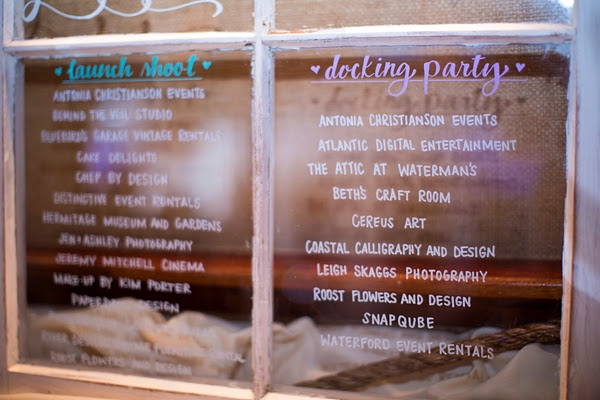 launch shoot
ANTONIA CHRISTIANSON EVENTS
BEHIND THE VEIL STUDIO
BLUEBIRD'S GARAGE VINTAGE RENTALS
CAKE DELIGHTS
CHEF BY DESIGN
DISTINCTIVE EVENT RENTALS
HERMITAGE MUSEUM AND GARDENS
JEN + ASHLEY PHOTOGRAPHY
JEREMY MITCHELL CINEMA
MAKE-UP BY KIM PORTER
DESIGN
ROOST FLOWERS AND DESIGN
docking party
ANTONIA CHRISTIANSON EVENTS
ATLANTIC DIGITAL ENTERTAINMENT
THE ATTIC AT WATERMAN'S
BETH'S CRAFT ROOM
CEREUS ART
COASTAL CALLIGRAPHY AND DESIGN
LEIGH SKAGGS PHOTOGRAPHY
ROOST FLOWERS AND DESIGN
SNAPQUBE
WATERFORD EVENT RENTALS